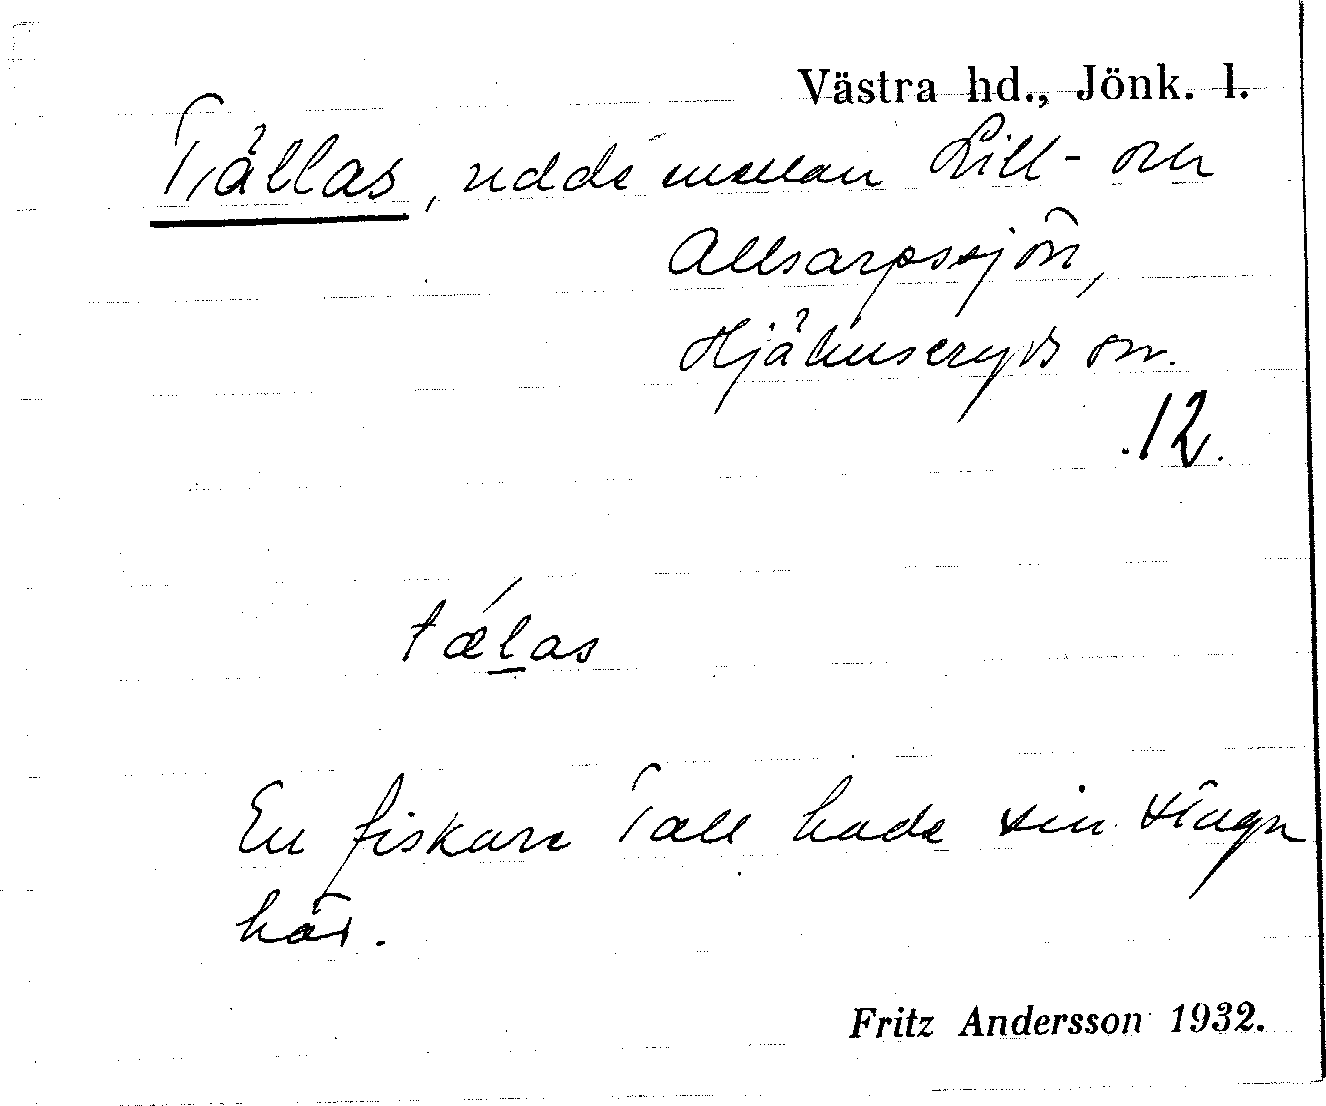 Västra hd., Jönk. l.
Tällas, udde mellan Lill- och
Allsarpssjön,
Hjälmseryds sn.
12.
tælas
En fiskare Tall hade sin stuga
här.
Fritz Andersson 1932.